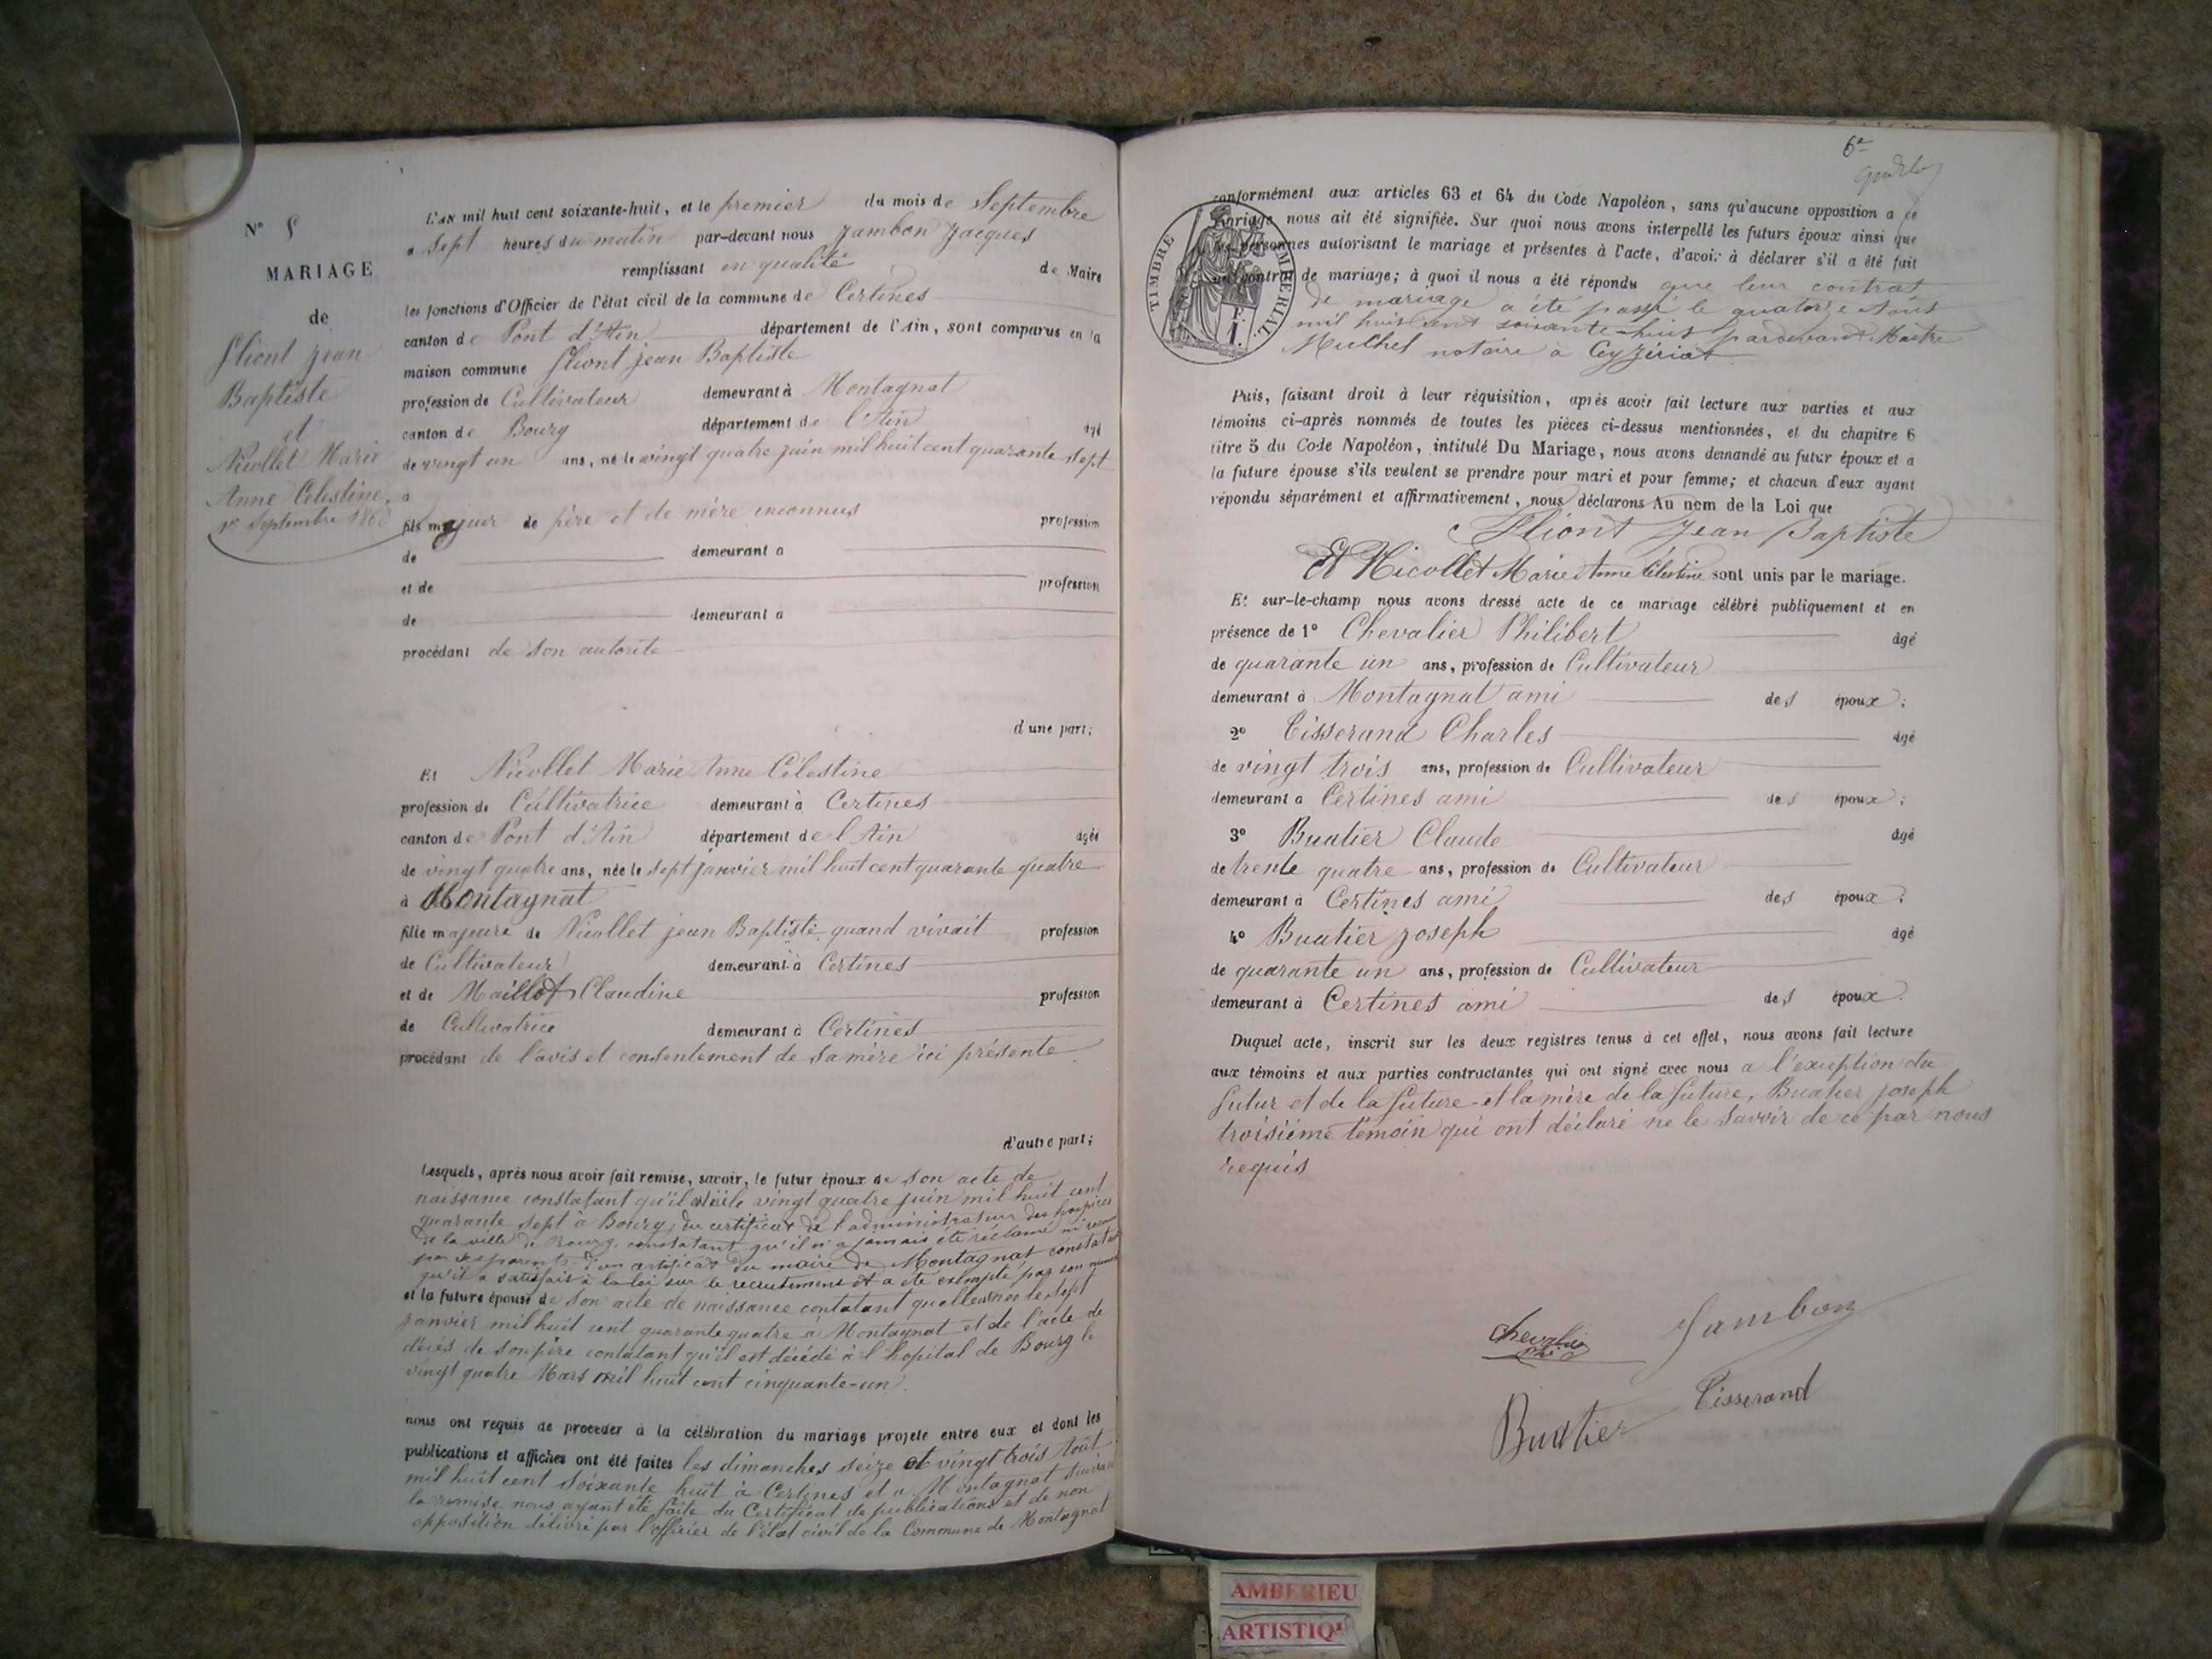 N° 5
MARIAGE
de
Fliont jean
Baptiste
et
Nicollet Marie
Anne Celestine.
1er Septembre 1868
L'AN mil huit cent soixante-huit, et le premier du mois de Septembre
a Sept heures du matin par-devant nous Jambon Jacques
remplissant en qualité de Maire
les fonctions d'Officier de l'état civil de la commune de Certines
canton de Pont d'Ain département de l'Ain, sont comparus en la
maison commune Fliont jean Baptiste
profession de Cultivateur demeurant à Montagnat
canton de Bourg département de l'Ain agé
de vingt un ans, né le vingt quatre juin mil huit cent quarante sept
à
fils majeur de père et de mère inconnus profession
de demeurant a
et de profession
de demeurant a
procédant de son autorité
d'une part;
Et Nicollet Marie Anne Célestine
profession de Cultivatrice demeurant à Certines
canton de Pont d'Ain département de l'Ain agée
de vingt quatre ans, née le sept janvier mil huit cent quarante quatre
à Montagnat
fille majeure de Nicollet jean Baptiste quand vivait profession
de Cultivateur demeurant à Certines
et de Maillot Claudine profession
de Cultivatrice demeurant à Certines
procédant de l'avis et consentement de sa mère ici présente
d'autre part;
Lesquels, après nous avoir fait remise, savoir, le futur époux de son acte de
naissance constatant qu'il est né le vingt quatre juin mil huit cent
quarante sept à Bourg, du certificat de l'administrateur des hospices
de la ville de Bourg, constatant qu'il n'a jamais été réclamé ni
par ses parents d'un certificat du maire de Montagnat constatant
qu'il a satisfait à la loi sur le recrutement et a été exempté par son numéro
et la future épouse de son acte de naissance contatant quelle est née le sept
janvier mil huit cent quarante quatre à Montagnat et de l'acte de
décès de son père contatant qu'il est décédé à l'hopital de Bourg le
vingt quatre Mars mil huit cent cinquante-un.
nous ont requis de procéder à la célébration du mariage projeté entre eux et dont les
publications et affiches ont été faites les dimanches seize et vingt trois Août
mil huit cent soixante huit à Certines et a Montagnat suivant
la remise nous ayant été faite du Certificat de publications et de non
opposition délivré par l'officier de l'état civil de la Commune de Montagnat
6e
conformément aux articles 63 et 64 du Code Napoléon, sans qu'aucune opposition a ce
mariage nous ait été signifiée. Sur quoi nous avons interpellé les futurs époux ainsi que
les personnes autorisant le mariage et présentes à l'acte, d'avoir à déclarer s'il a été fait
un contrat de mariage; à quoi il nous a été répondu que leur contrat
de mariage a été passé le quatorze Août
mil huit cent soixante-huit pardevant Maitre
notaire à Ceyzériat
TIMBRE IMPÉRIAL.
Puis, faisant droit à leur réquisition, après avoir fait lecture aux parties et aux
témoins ci-après nommés de toutes les pièces ci-dessus mentionnées, et du chapitre 6
titre 5 du Code Napoléon, intitulé Du Mariage, nous avons demandé au futur époux et a
la future épouse s'ils veulent se prendre pour mari et pour femme; et chacun d'eux ayant
répondu séparément et affirmativement, nous déclarons Au nom de la Loi que
Fliont Jean Baptiste
Et Nicollet Marie Anne Célestine sont unis par le mariage.
Et sur-le-champ nous avons dressé acte de ce mariage célébré publiquement et en
présence de 1° Chevalier Philibert âgé
de quarante un ans, profession de Cultivateur
demeurant à Montagnat ami des époux;
2° Tisserand Charles âgé
de vingt trois ans, profession de Cultivateur
demeurant a Certines ami des époux;
3° Buatier Claude âgé
de trente quatre ans, profession de Cultivateur
demeurant à Certines ami des époux;
4° Buatier joseph âgé
de quarante un ans, profession de Cultivateur
demeurant à Certines ami des époux.
Duquel acte, inscrit sur les deux registres tenus à cet effet, nous avons fait lecture
aux témoins et aux parties contractantes qui ont signé avec nous a l'exception du
futur et de la future et la mère de la future, Buatier joseph
troisième témoin qui ont déclaré ne le savoir de ce par nous
requis
Chevalier Jambon
Phi
Buatier Tisserand
AMBERIEU
ARTISTIQ